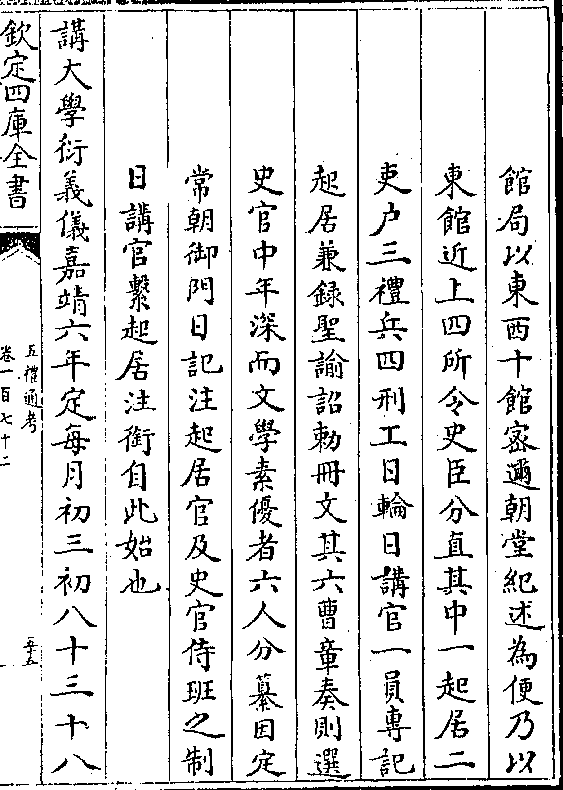 館局以東西十館宻邇朝堂紀述為便乃以
東館近上四所令史臣分直其中一起居二
吏户三禮兵四刑工日輪日講官一員專記
起居兼録聖諭詔勅冊文其六曹章奏則選
史官中年深而文學素優者六人分纂因定
常朝御門日記注起居官及史官侍班之制
日講官繫起居注銜自此始也
講大學衍義儀嘉靖六年定每月初三初八十三十八
欽定四庫全書
五禮通考
卷一百七十二